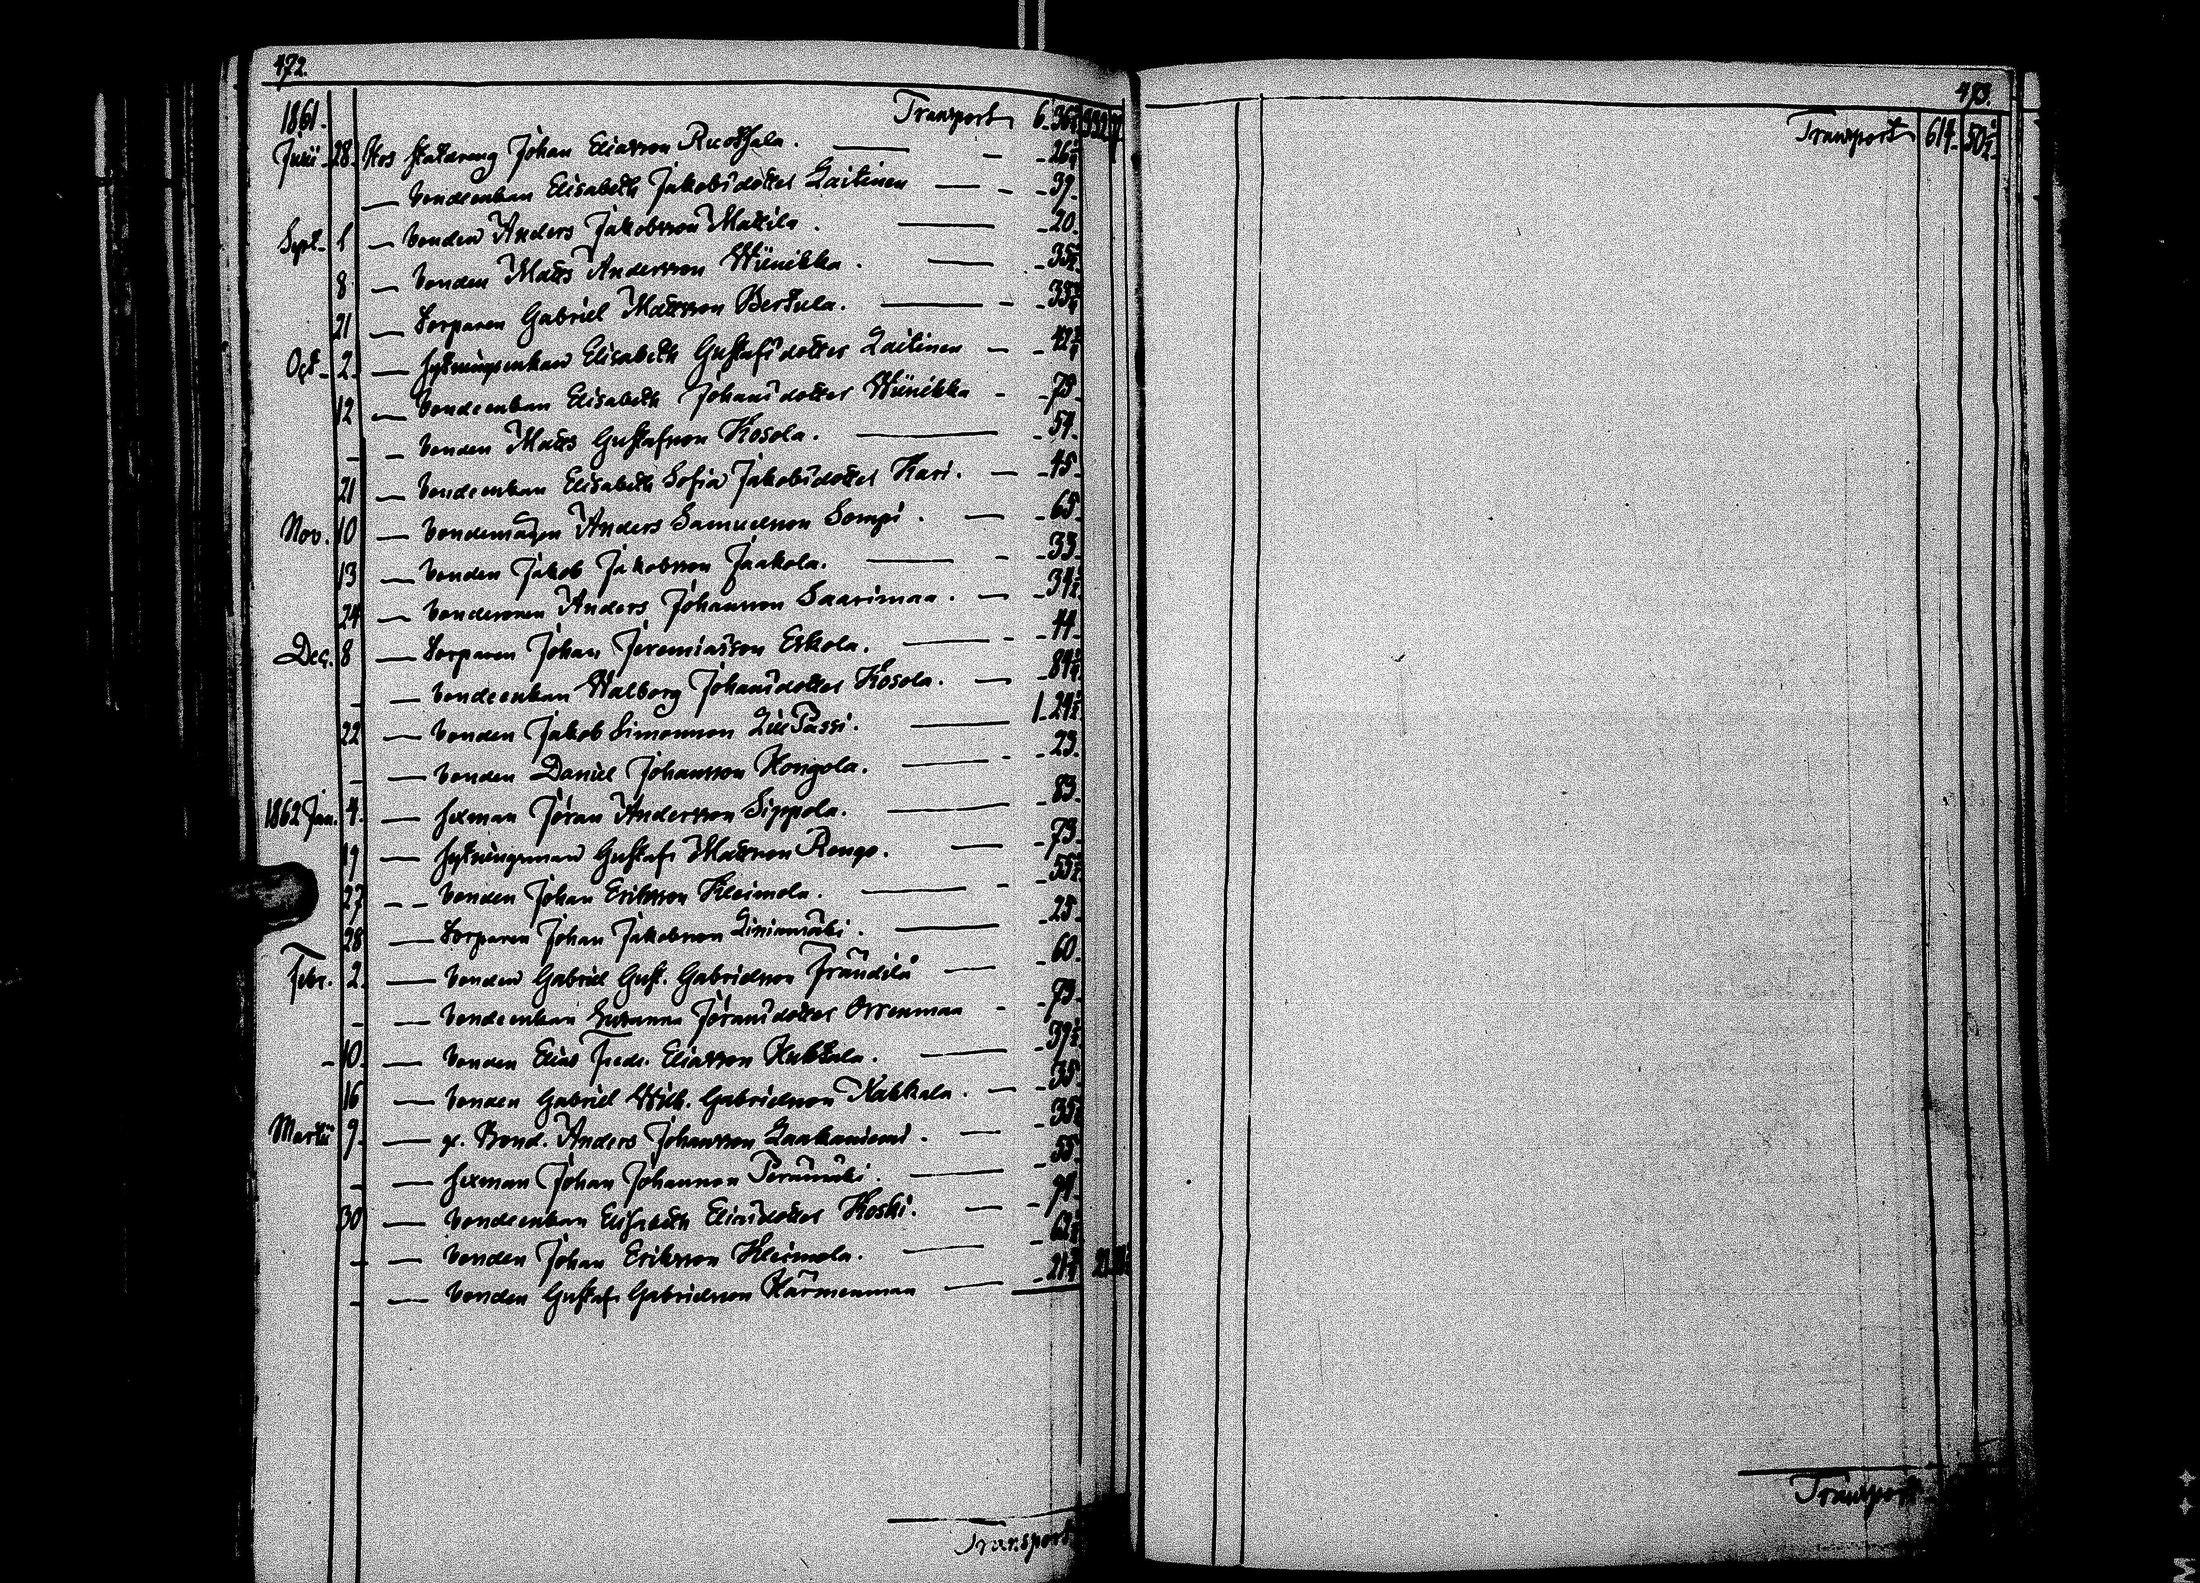 472.
1861. Transport 6. 36
Junii 28. Hos statdreng Johan Eliasson Ruotsala. 26
— bondeenkan Elisabeth Jakobsdotter Laitinen 39.
Sept. 1 — bonden Anders Jakobsson Mattila. 20.
8 — bonden Matts Andersson Wiinikka. 35
21 — torparen Gabriel Mattsson Bertula. 33
Oct. 2. — sytningsenkan Elisabeth Gustafsdotter Laitinen 42
12 — bondeenkan Elisabeth Johansdotter Wiinikka 73.
— bonden Matts Gustafsson Kosola. 54.
21 — bondeenkan Elisabeth Sofia Jakobsdotter Kari. 45.
Nov. 10 — bondemågen Anders Samuelsson Sompi. 65.
13 — bonden Jakob Jakobsson Jaakola. 33.
24 — bondesonen Anders Johansson Saarimaa. 34
Dec. 8 — torparen Johan Jeremiasson Eskola. 44.
— bondeenkan Walborg Johansdotter Kosola. 84
22 — bonden Jakob Simonsson Passi. 1. 24
— bonden Daniel Johansson Kongola. 23.
1862 Jan. 4. — hexman Jöran Andersson Sippola. 83.
19 — sytningsman Gustaf Mattsson Rengo. 73.
27 — bonden Johan Eriksson Kleimola. 55
28 — torparen Johan Jakobsson Liiniamäki. 25.
Febr. 2. — bonden Gabriel Gust. Gabrielsson Frändilä 60.
— bondeenkan Susanna Jöransdotter Orrenmaa 73.
10. — bonden Elias Fredr. Eliasson Huktala. 39
16 — bonden Gabriel Wilh. Gabrielsson Kakkala. 35.
Martii 9. — Bond. Anders Johansson Laakaniemi. 35
— hexman Johan Johansson Perämäki. 55.
30 — bondeenkan Elisabeth Eliasdotter Koski.
— bonden Johan Eriksson Kleimola. 62
— bonden Gustaf Gabrielsson Härmenmaa 21
Transport
473.
Transport 614. 50
Transport